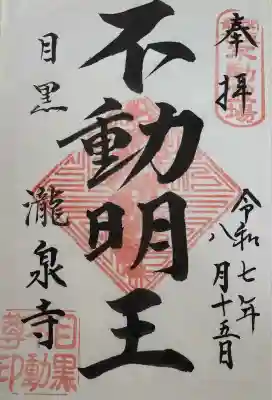 奉拝
令和七年
八月十五日
不動明王
目黒
瀧泉寺
目黒
不動
尊印